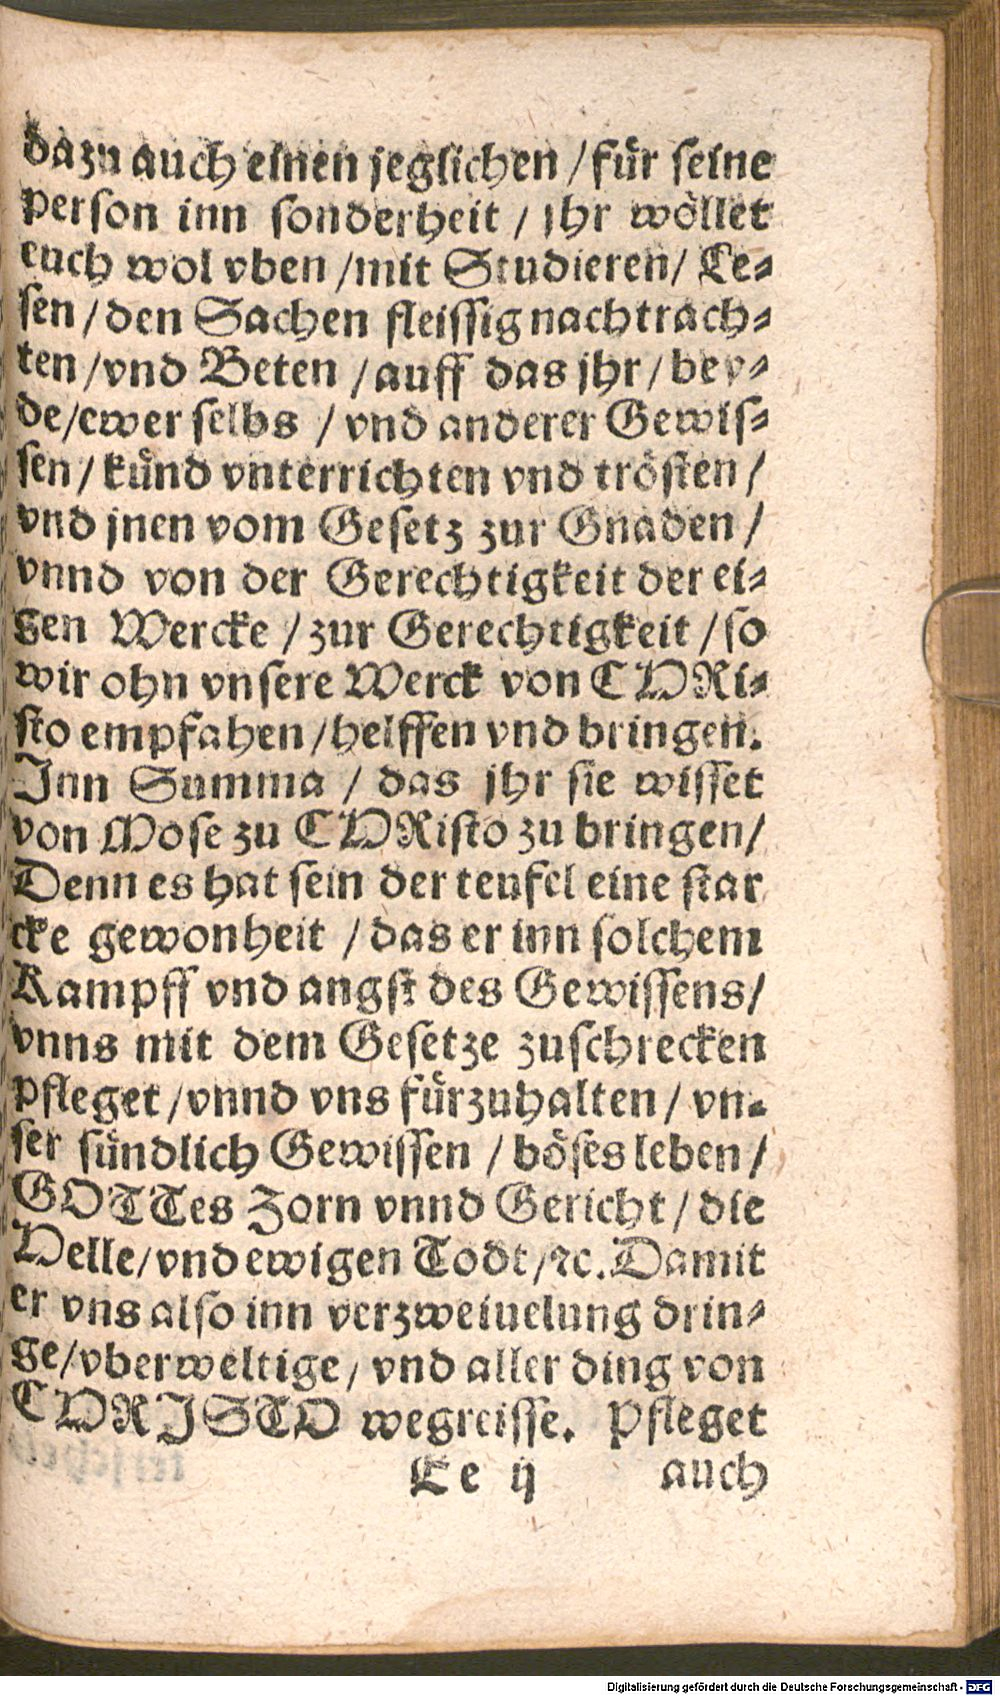 dazu auch einen jeglichen / für seine
person inn sonderheit / jhr wöllet
euch wol vben / mit Studieren / Le-
sen / den Sachen fleissig nachtrach-
ten / vnd Beten / auff das jhr / bey-
de / ewer selbs / vnd anderer Gewis-
sen / künd vnterrichten vnd trösten /
vnd jnen vom Gesetz zur Gnaden /
vnnd von der Gerechtigkeit der ei-
gen Wercke / zur Gerechtigkeit / so
wir ohn vnsere Werck von CHRi-
sto empfahen / helffen vnd bringen.
Inn Summa / das jhr sie wisset
von Mose zu CHRisto zu bringen /
Denn es hat sein der teufel eine star
cke gewonheit / das er inn solchem
Kampff vnd angst des Gewissens /
vnns mit dem Gesetze zuschrecken
pfleget / vnnd vns fürzuhalten / vn-
ser sündlich Gewissen / böses leben /
GOTTes Zorn vnnd Gericht / die
Helle / vnd ewigen Todt / ꝛc. Damit
er vns also inn verzweiuelung drin-
ge / vberweltige / vnd aller ding von
CHRISTO wegreisse. Pfleget
Ee ij auch
Digitalisierung gefördert durch die Deutsche Forschungsgemeinschaft - DFG